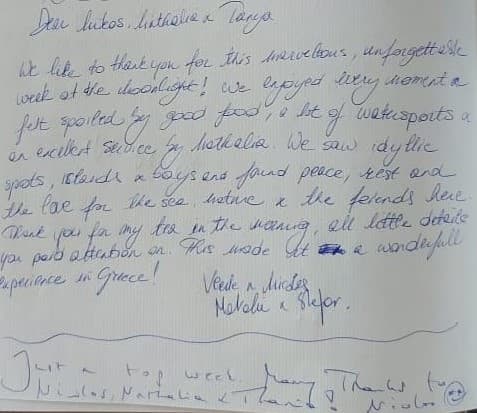 Dear Nikos, Nathalia & Tanya
We like to thank you for this marvelous, unforgettable
week at the Moonlight! We enjoyed every moment &
felt spoiled by good food, a lot of watersports &
an excellent service by Nathalia. We saw idyllic
spots, islands & bays and found peace, rest and
the love for the sea, nature & the friends here.
Thank you for my tea in the morning, all little details
you paid attention on. This made it a wonderfull
experience in Greece!
& Nicolas
Natalie & Stefan.
Just a top week. Many Thanks to
Nikolas, Nathalia & Thania!